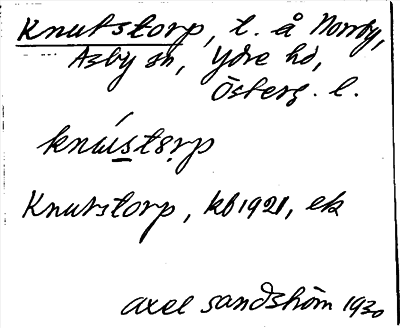 Knutstorp, t. å Norrby,
Asby sn, Ydre hd,
Österg. l.
knústọrp
Knutstorp, kb 1921, ek
Axel Sandström 1930